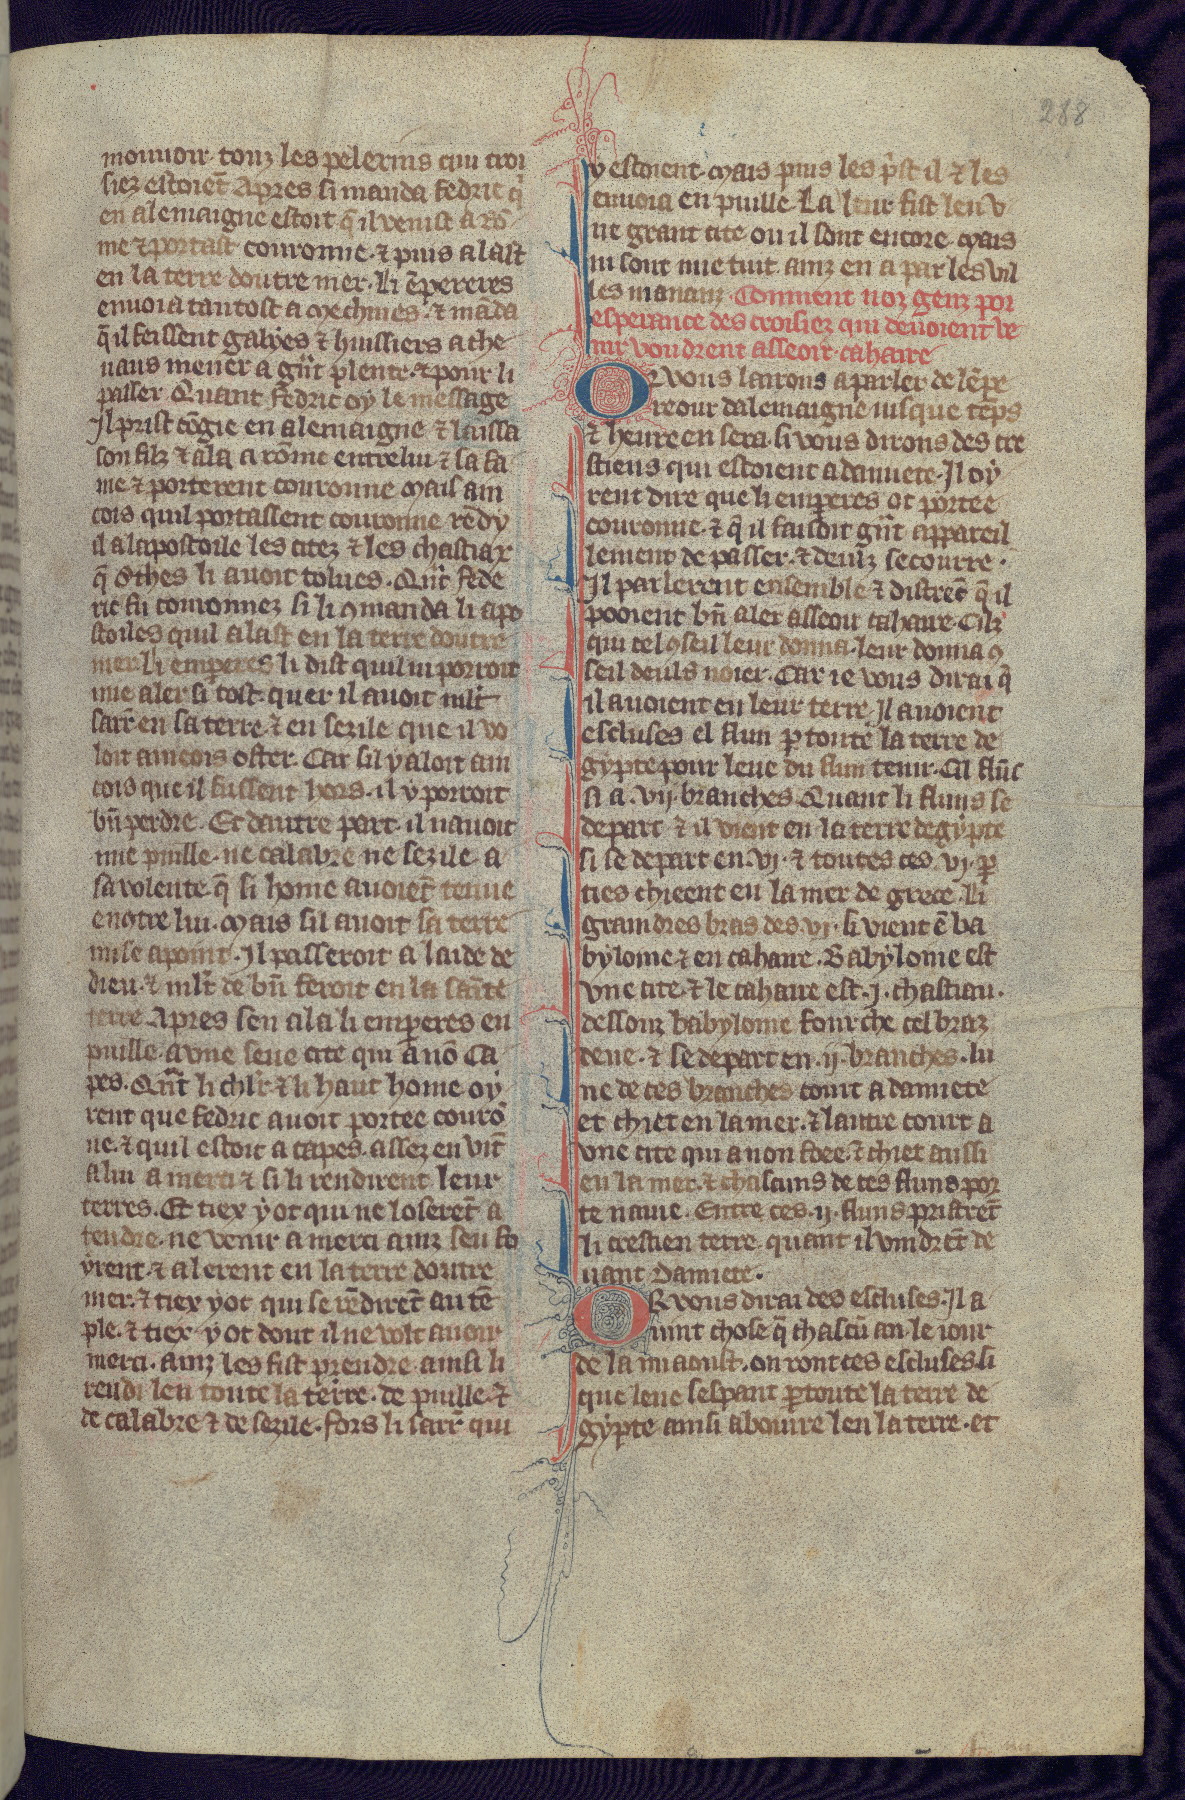 288
mouuoir touz les pelerins qui croi
siez estoiēt Apres si manda fedric q̄
en alemaigne estoit q̄ il venist a ro
me ⁊ portast couronne ⁊ puis alast
en la terre doutre mer. Li ēpereres
enuoia tantost a meschines ⁊ māda
q̄ il feissent galyes ⁊ huissiers a che
uaus mener a gr̄t plente ⁊ pour li
passer Quant fedric oy le message
Il prist cōgie en alemaigne ⁊ laissa
son filz ⁊ ala a rōme entre lui ⁊ sa fa
me ⁊ porterent couronne Mais ain
cois quil portassent couronne rēdy
il a lapostoile les citez ⁊ les chastiax
q̄ othes li auoit tolues. Qn̄t fede
ric fu couronnez si li 9manda li apo
stoiles quil alast en la terre doutre
mer li emperes li dist quil ni porroit
mie aler si tost quer il auoit ml̄t
sarr̄ en sa terre ⁊ en sezile que il vo
loit aincois oster. Car sil y aloit ain
cois que il fussent hors. il y porroit
bn̄ perdre. Et dautre part il nauoit
mie puille. ne calabre ne sezile a
sa volente q̄ si home auoiēt tenue
encōtre lui. Mais sil auoit sa terre
mise a point. Il passeroit a laide de
dieu. ⁊ ml̄t de bn̄ feroit en la sainte
terre Apres sen ala li emperes en
puille a vne seue cite qui a nō Ca
pes. Qn̄t li chlr̄ ⁊ li haut home oy
rent que fedric auoit portee courō
ne. ⁊ quil estoit a capes. assez en vīt
a lui a merci ⁊ si li rendirent leur
terres. Et tiex y ot qui ne loserēt a
tendre. ne venir a merci ainz sen fo
yrent ⁊ alerent en la terre doutre
mer. ⁊ tiex y ot qui se rēdirēt au tē
ple. ⁊ tiex y ot dont il ne volt auoir
merci. ainz les fist prendre. ainsi li
rendi len toute la terre. de puille. ⁊
de calabre ⁊ de sezile. fors li sarr̄ qui
y estoient. Mais puis les p̄st il ⁊ les
enuoia en puille La leur fist len v
ne grant cite ou il sont encore Mais
ni sont mie tuit ainz en a par les vil
les mananz. Comment noz genz por
esperance des croisiez qui deuoient ve
nir voudrent asseoir cahaire
Or vous lairons a parler de lēpe
reour dalemaigne iusque tēps
⁊ heure en sera. si vous dirons des cre
stiens qui estoient a damiete. Il oy
rent dire que li emperes ot portee
couronne. ⁊ q̄ il faisoit gn̄t appareil
lement de passer. ⁊ deulz secourre.
Il parlerent ensemble ⁊ distrēt q̄ il
pooient bn̄ aler asseoir cahaire. Cilz
qui tel 9seil leur donna. leur donna 9
seil deuls noier. Car ie vous dirai q̄
il auoient en leur terre Il auoient
escluses el flun p toute la terre de
gypte pour leue du flun tenir. Cil flūs
si a .vij. branches Quant li fluns se
depart ⁊ il vient en la terre degypte
si se depart en .vj. ⁊ toutes ces .vj. p
ties chieent en la mer de grece. Li
graindres bras des .vj. si vient ē ba
bylone ⁊ en cahaire. Babylone est
vne cite. ⁊ le cahaire est .j. chastiau.
dessouz babylone fourche cel braz
deue. ⁊ se depart en .ij. branches. lu
ne de ces branches court a damiete
et chiet en la mer. ⁊ lautre court a
vne cite qui a non foee. ⁊ chiet aussi
en la mer. ⁊ chascuns de ces fluns por
te nauie. Entre ces .ij. fluns pristrēt
li crestien terre quant il vindrēt de
uant Damiete.
Or vous dirai des escluses. Il a
uint chose q̄ chascū an le iour
de la miaoust. on ront ces escluses. si
que leue sespant p toute la terre de
gypte ainsi abouure len la terre. et